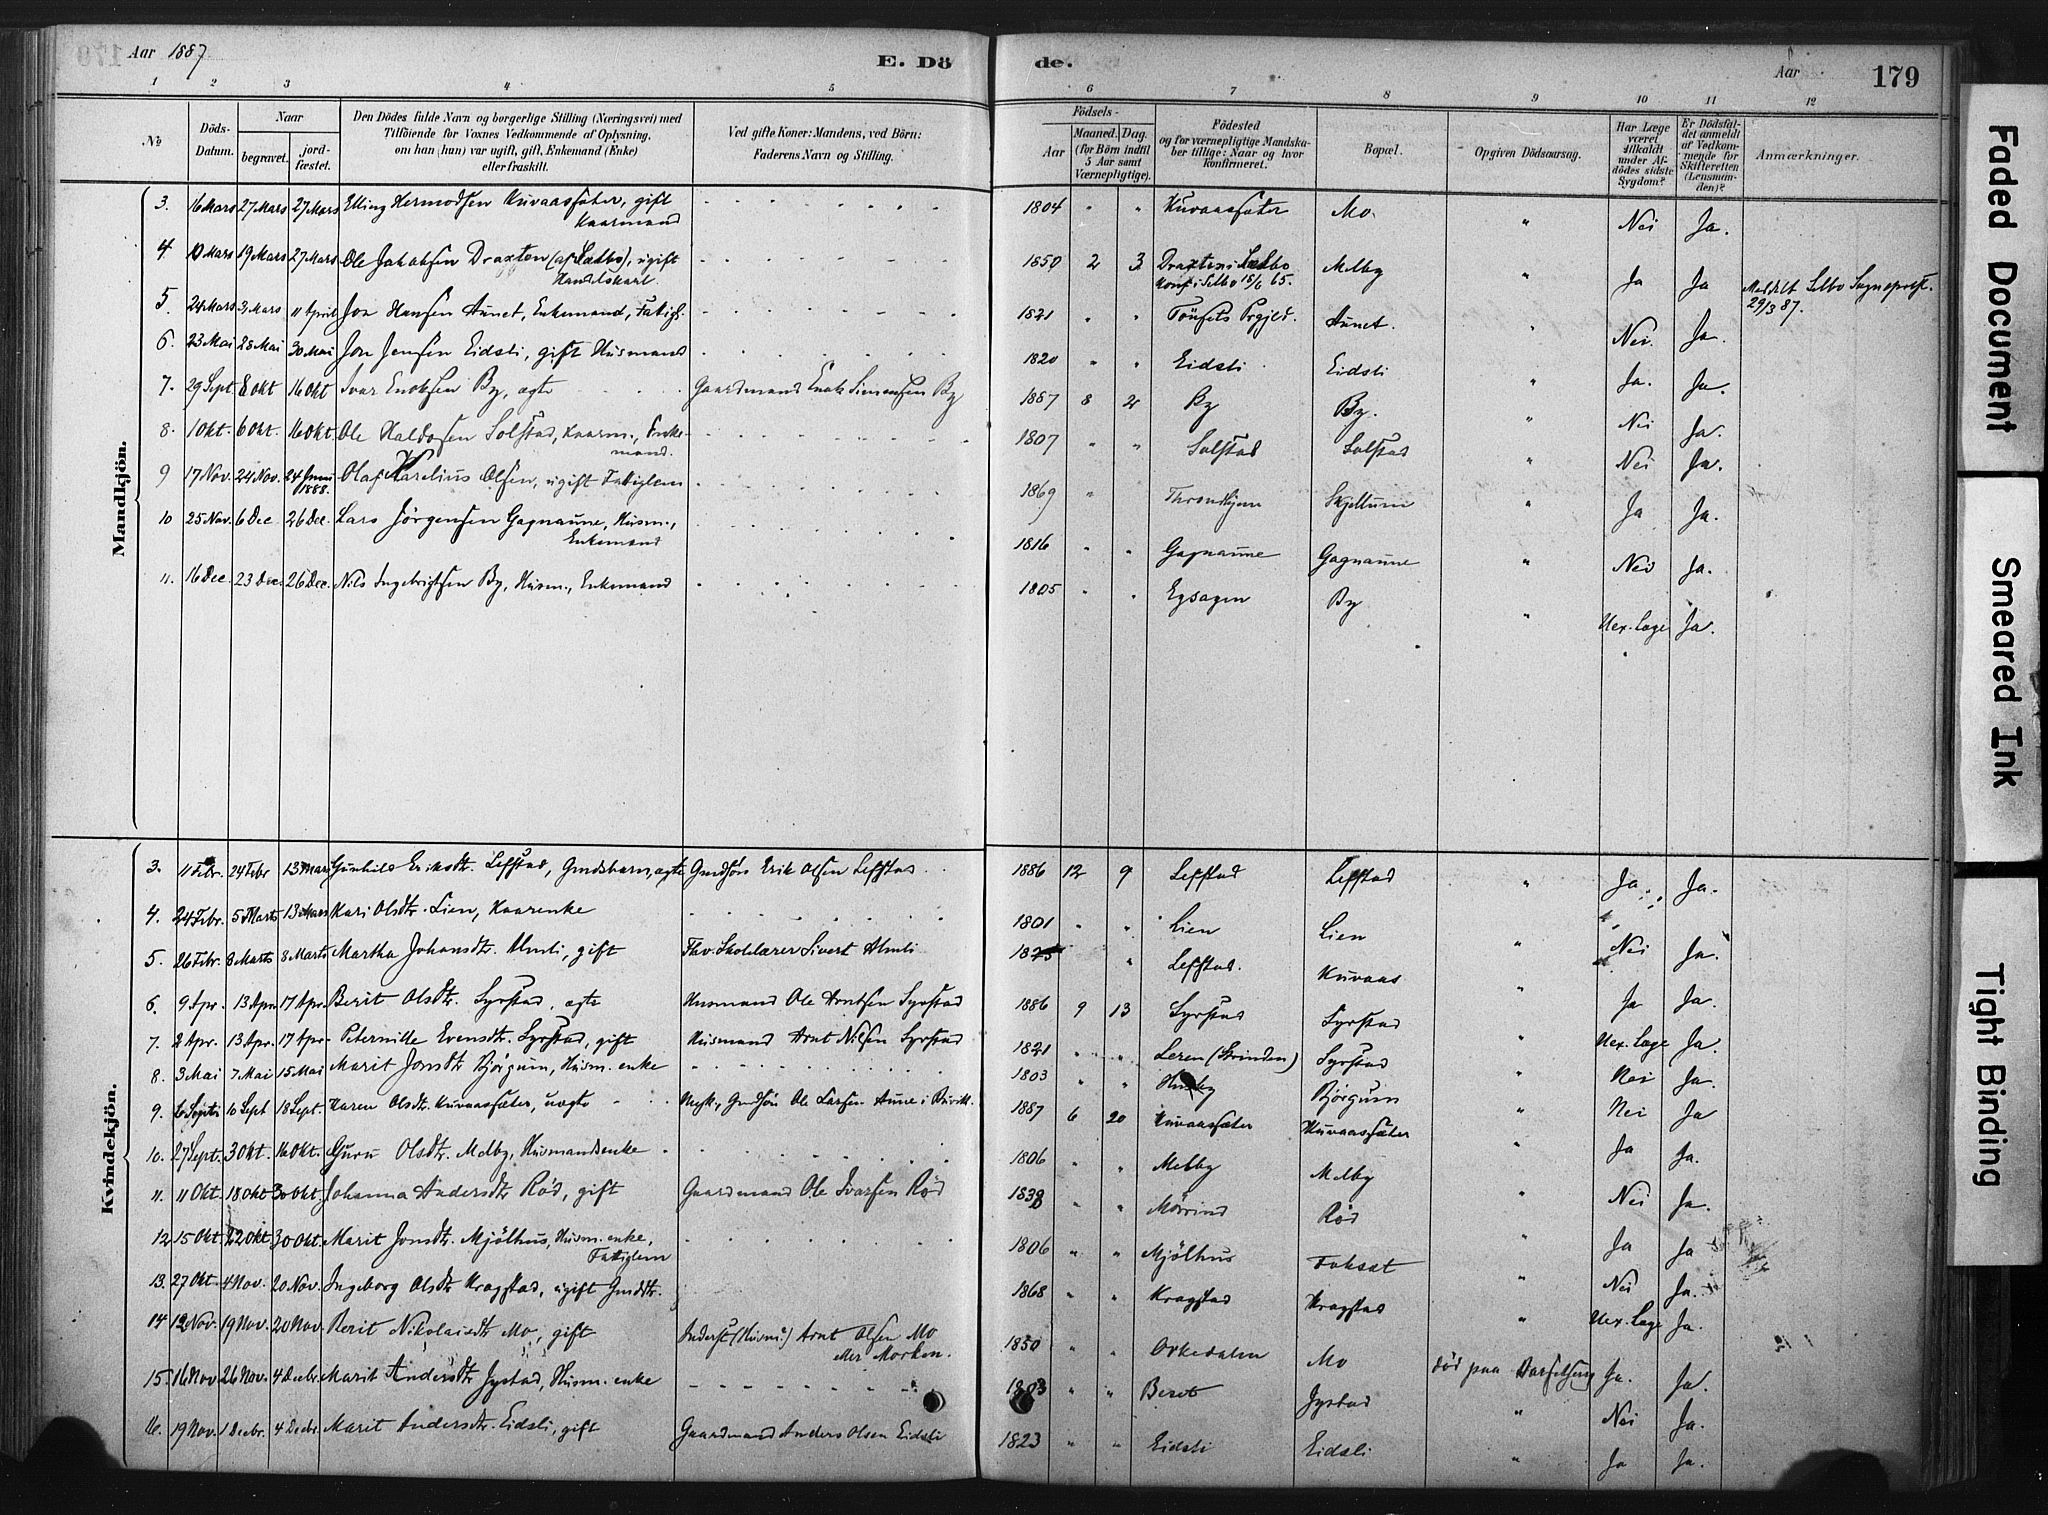 Aar 1887
E. Dö
de.
Aar
179
1 2 3 4 5 6 7 8 9 10 11 12
No
Döds-Datum.
Naar
begravet.
jord-fæstet.
Den Dödes fulde Navn og borgerlige Stilling (Næringsvei) med
Tilföiende for Voxnes Vedkommende af Oplysning,
om han (hun) var ugift, gift, Enkemand (Enke)
eller fraskilt.
Ved gifte Koner: Mandens, ved Börn:
Faderens Navn og Stilling.
Födsels-
Aar
Maaned. Dag.
(for Börn indtil
5 Aar samt
Værnepligtige).
Födested
og for værnepligtige Mandska-
ber tillige: Naar og hvor
konfirmeret.
Bopæl.
Opgiven Dödsaarsag.
Har Læge
været
tilkaldt
under Af-
dödes sidste
Sygdom?
Er Dödsfal-
det anmeldt
af Vedkom-
mende for
Skifteretten
(Lensman-
den)?
Anmærkninger.
Mandkjön.
3. 16 Mars 27 Mars 27 Mars Elling Hermodsen Kuvaassæter, gift 1804 " " Kuvaassæter Mo. " Nei Ja.
Kaarmand
4. 10 Mars 19 Mars 27 Mars Ole Jakobsen Draxten (af Selbo), ugift 1850 2 3 Draxten i Selbo Melby " Ja Ja Meddelt Selbo Sogneprest
Handelskarl. Konf. i Selbo 18/6 65. 29/3 87.
5. 24 Mars 3 Mars 11 April Jon Hansen Aunet, Enkemand, Fattigl. 1821 " " Tönsets Prgjeld. Aunet. " Nei. Ja.
6. 23 Mai 28 Mai 30 Mai Jon Jensen Eidsli, gift Husmand 1820 " " Eidsli Eidsli " Ja. Ja.
7. 29 Sept. 8 Okt 16 Okt Ivar Enoksen By, ægte Gaardmand Enok Simensen By 1887 8 2 By By. " Nei Ja.
8. 1 Okt. 6 Okt. 16 Okt. Ole Haldosen Solstad, Kaarm., Enke- 1807 " " Solstad Solstad " Nei Ja.
mand.
9 17 Nov. 24 Nov. 24 Janu Olaf Karelius Olsen, ugift Fattiglem 1869 " Throndhjem Skjellum " Ja Ja.
1888.
10 25 Nov. 6 Dec 26 Dec. Lars Jörgensen Gagnaune, Husm., 1816 " " Gagnaune Gagnaune " Nei Ja.
Enkemand
11. 16 Dec. 23 Dec. 26 Dec. Nils Ingebrigtsen By, Husm., Enkemand 1805 " " Egsagen By " Uex. læge Ja.
Kvindekjön.
3. 11 Febr. 24 Febr 13 Mars Gunhild Eriksdtr. Lefstad, Grndsbarn, ægte Grndsøn Erik Olsen Lefstad 1886 12 9 Lefstad Lefstad " Ja. Ja.
4. 24 Febr. 5 Marts 13 Mars Kari Olsdtr. Lien, Kaarenke 1801 " " Lien Lien " Nei Ja.
5. 26 Febr. 8 Marts 8 Marts Martha Johansdtr. Almli, gift Fhv. Skolelærer Sivert Almli 1825 " Lefstad. Kuvaas " Ja Ja.
6. 9 Apr. 13 Apr. 17 Apr. Berit Olsdtr. Syrstad, ægte Husmand Ole Arntsen Syrstad 1886 9 13 Syrstad Syrstad " Uex. læge Ja.
7. 2 Apr. 13 Apr. 17 Apr. Peternille Evensdtr. Syrstad, gift Husmand Arnt Nilsen Syrstad 1821 " " Leren (Strinden) Syrstad " Nei Ja.
8. 3 Mai 7 Mai 15 Mai Marit Jonsdtr Bjørgum, Husm. enke 1803 " " Husby Bjørgum " Nei Ja
9. Septr 10 Sept 18 Sept. Karen Olsdtr. Kuvaassæter, uægte Ungk., Grndsøn Ole Larsen Aune i Buvik. 1887 6 20 Kuvaassæter Kuvaassæter " Ja Ja.
10. 27 Sept. 3 Okt. 16 Okt. Guru Olsdtr. Melby, Husmandsenke 1806 " " Melby Melby " Nei Ja.
11. 11 Okt. 18 Okt 30 Okt. Johanna Andersdtr Rød, gift Gaardmand Ole Ivarsen Rød 1838 " " Mörrind Rød " Ja Ja
12 15 Okt 22 Okt. 30 Okt. Marit Jonsdtr. Mjölhus, Husm. enke, 1806 " " Mjölhus Foksæt " Nei Ja.
Fattiglem
13. 27 Okt. 4 Nov. 20 Nov. Ingeborg Olsdtr Kragstad, ugift Grndtr. 1868 " " Kragstad Kragstad " Uex. læge Ja.
14 12 Nov. 19 Nov. 20 Nov. Berit Nikolaisdtr Mo, gift Inderst (Husm.) Arnt Olsen Mo 1850 " " Orkedalen Mo død paa Barselseng Ja. Ja.
eller Morken.
15. 16 Nov 26 Nov. 4 Decbr. Marit Andersdtr Jystad, Husm. enke 1803 " " Beset Jystad " Nei Ja.
16. 19 Nov. 1 Decbr. 4 Decbr. Marit Andersdtr. Eidsli, gift Gaardmand Anders Olsen Eidsli 1823 " " Eidsli Eidsli " Ja Ja.
Faded Document
Smeared Ink
Tight Binding